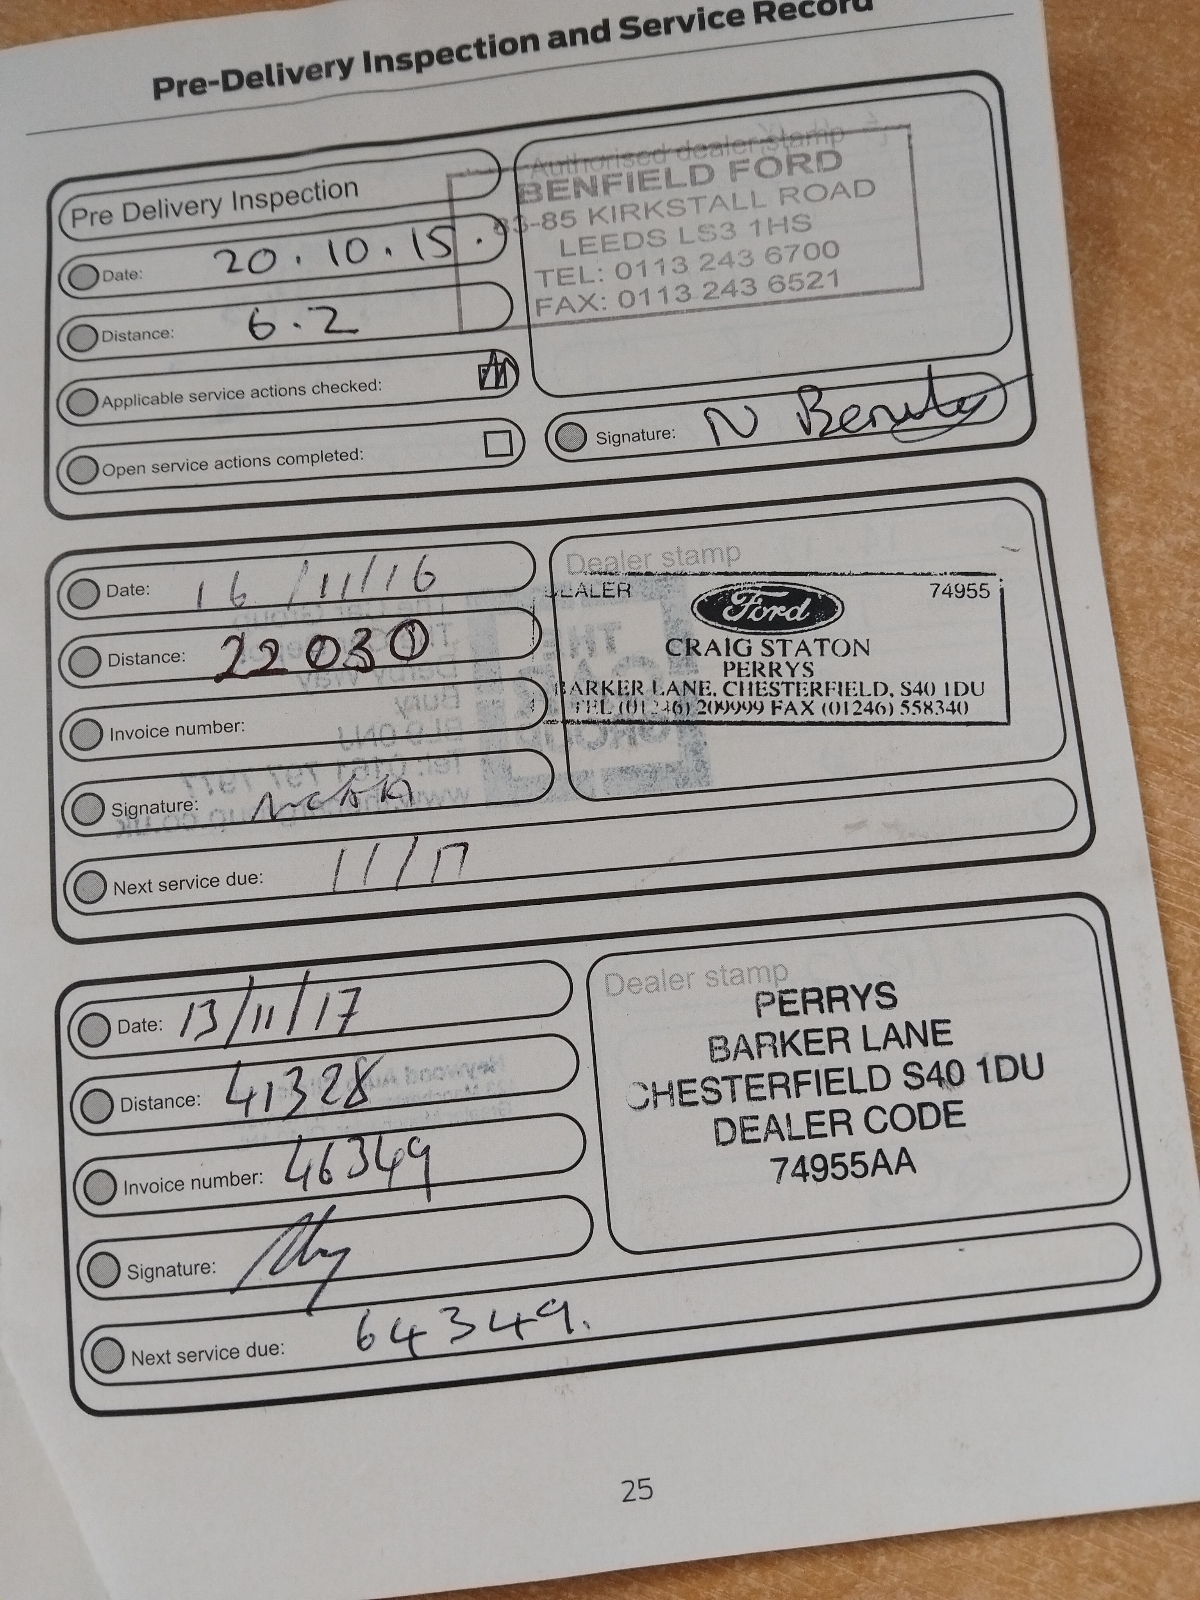 Pre-Delivery Inspection and Service Record
Pre Delivery Inspection
Date: 20.10.15.
Distance: 6.2
Applicable service actions checked:
Open service actions completed:
Authorised dealer stamp
BENFIELD FORD
83-85 KIRKSTALL ROAD
LEEDS LS3 1HS
TEL: 0113 243 6700
FAX: 0113 243 6521
Signature: N
Date: 16/11/16
Distance: 22030
Invoice number:
Signature:
Next service due: 11/17
Dealer stamp
DEALER 74955
Ford
CRAIG STATON
PERRYS
BARKER LANE, CHESTERFIELD, S40 1DU
TEL (01246) 209999 FAX (01246) 558340
Date: 13/11/17
Distance: 41328
Invoice number: 46349
Signature:
Next service due: 64349.
Dealer stamp
PERRYS
BARKER LANE
CHESTERFIELD S40 1DU
DEALER CODE
74955AA
25